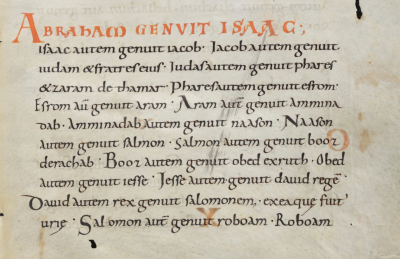 ABRAHAM GENUIT ISAAC;
isaac autem genuit iacob· Jacob autem genuit
iudam & fratres eius· Judas autem genuit phares
& zaram de thamar· Phares autem genuit esrom·
Esrom aut̄ genuit aram· Aram aut̄ genuit ammina
dab· Amminadab autem genuit naason· Naason
autem genuit salmon· Salmon autem genuit booz
de rachab· Booz autem genuit obed ex ruth· Obed
autem genuit iesse· Jesse autem genuit dauid regē
Dauid autem rex genuit salomonem, ex ea que fuit
urie· Salomon aut̄ genuit roboam· Roboam